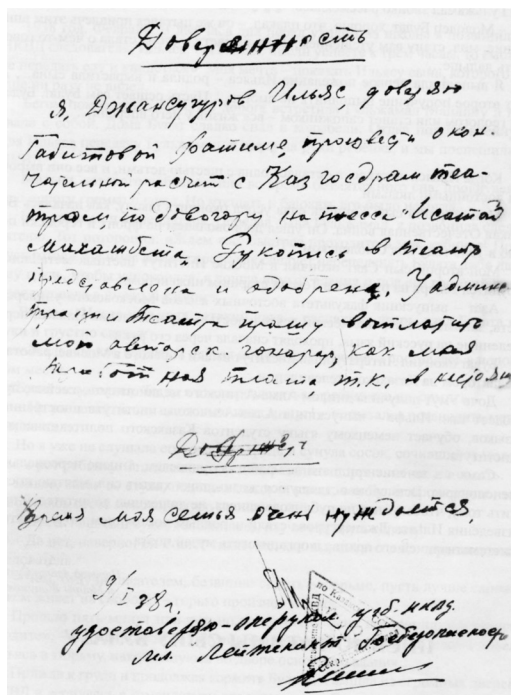 Доверенность
Я, Джансугуров Ильяс, доверяю
Габитовой Фатиме, произвести окон-
чательный расчет с Казгосдрам теа-
тром по договору на пьеса "Исатай
Махамбета. Рукопись в театр
представлена и одобрена. У админи-
страции театра прошу выплатить
мою авторск. гонорар, как моя
ная плата т.к. в настоящ
время моя семья очень нуждается.
9/I 38 г.
удостоверяю - оперупол угб. нквд
мл. Лейтенант Госбезопасность